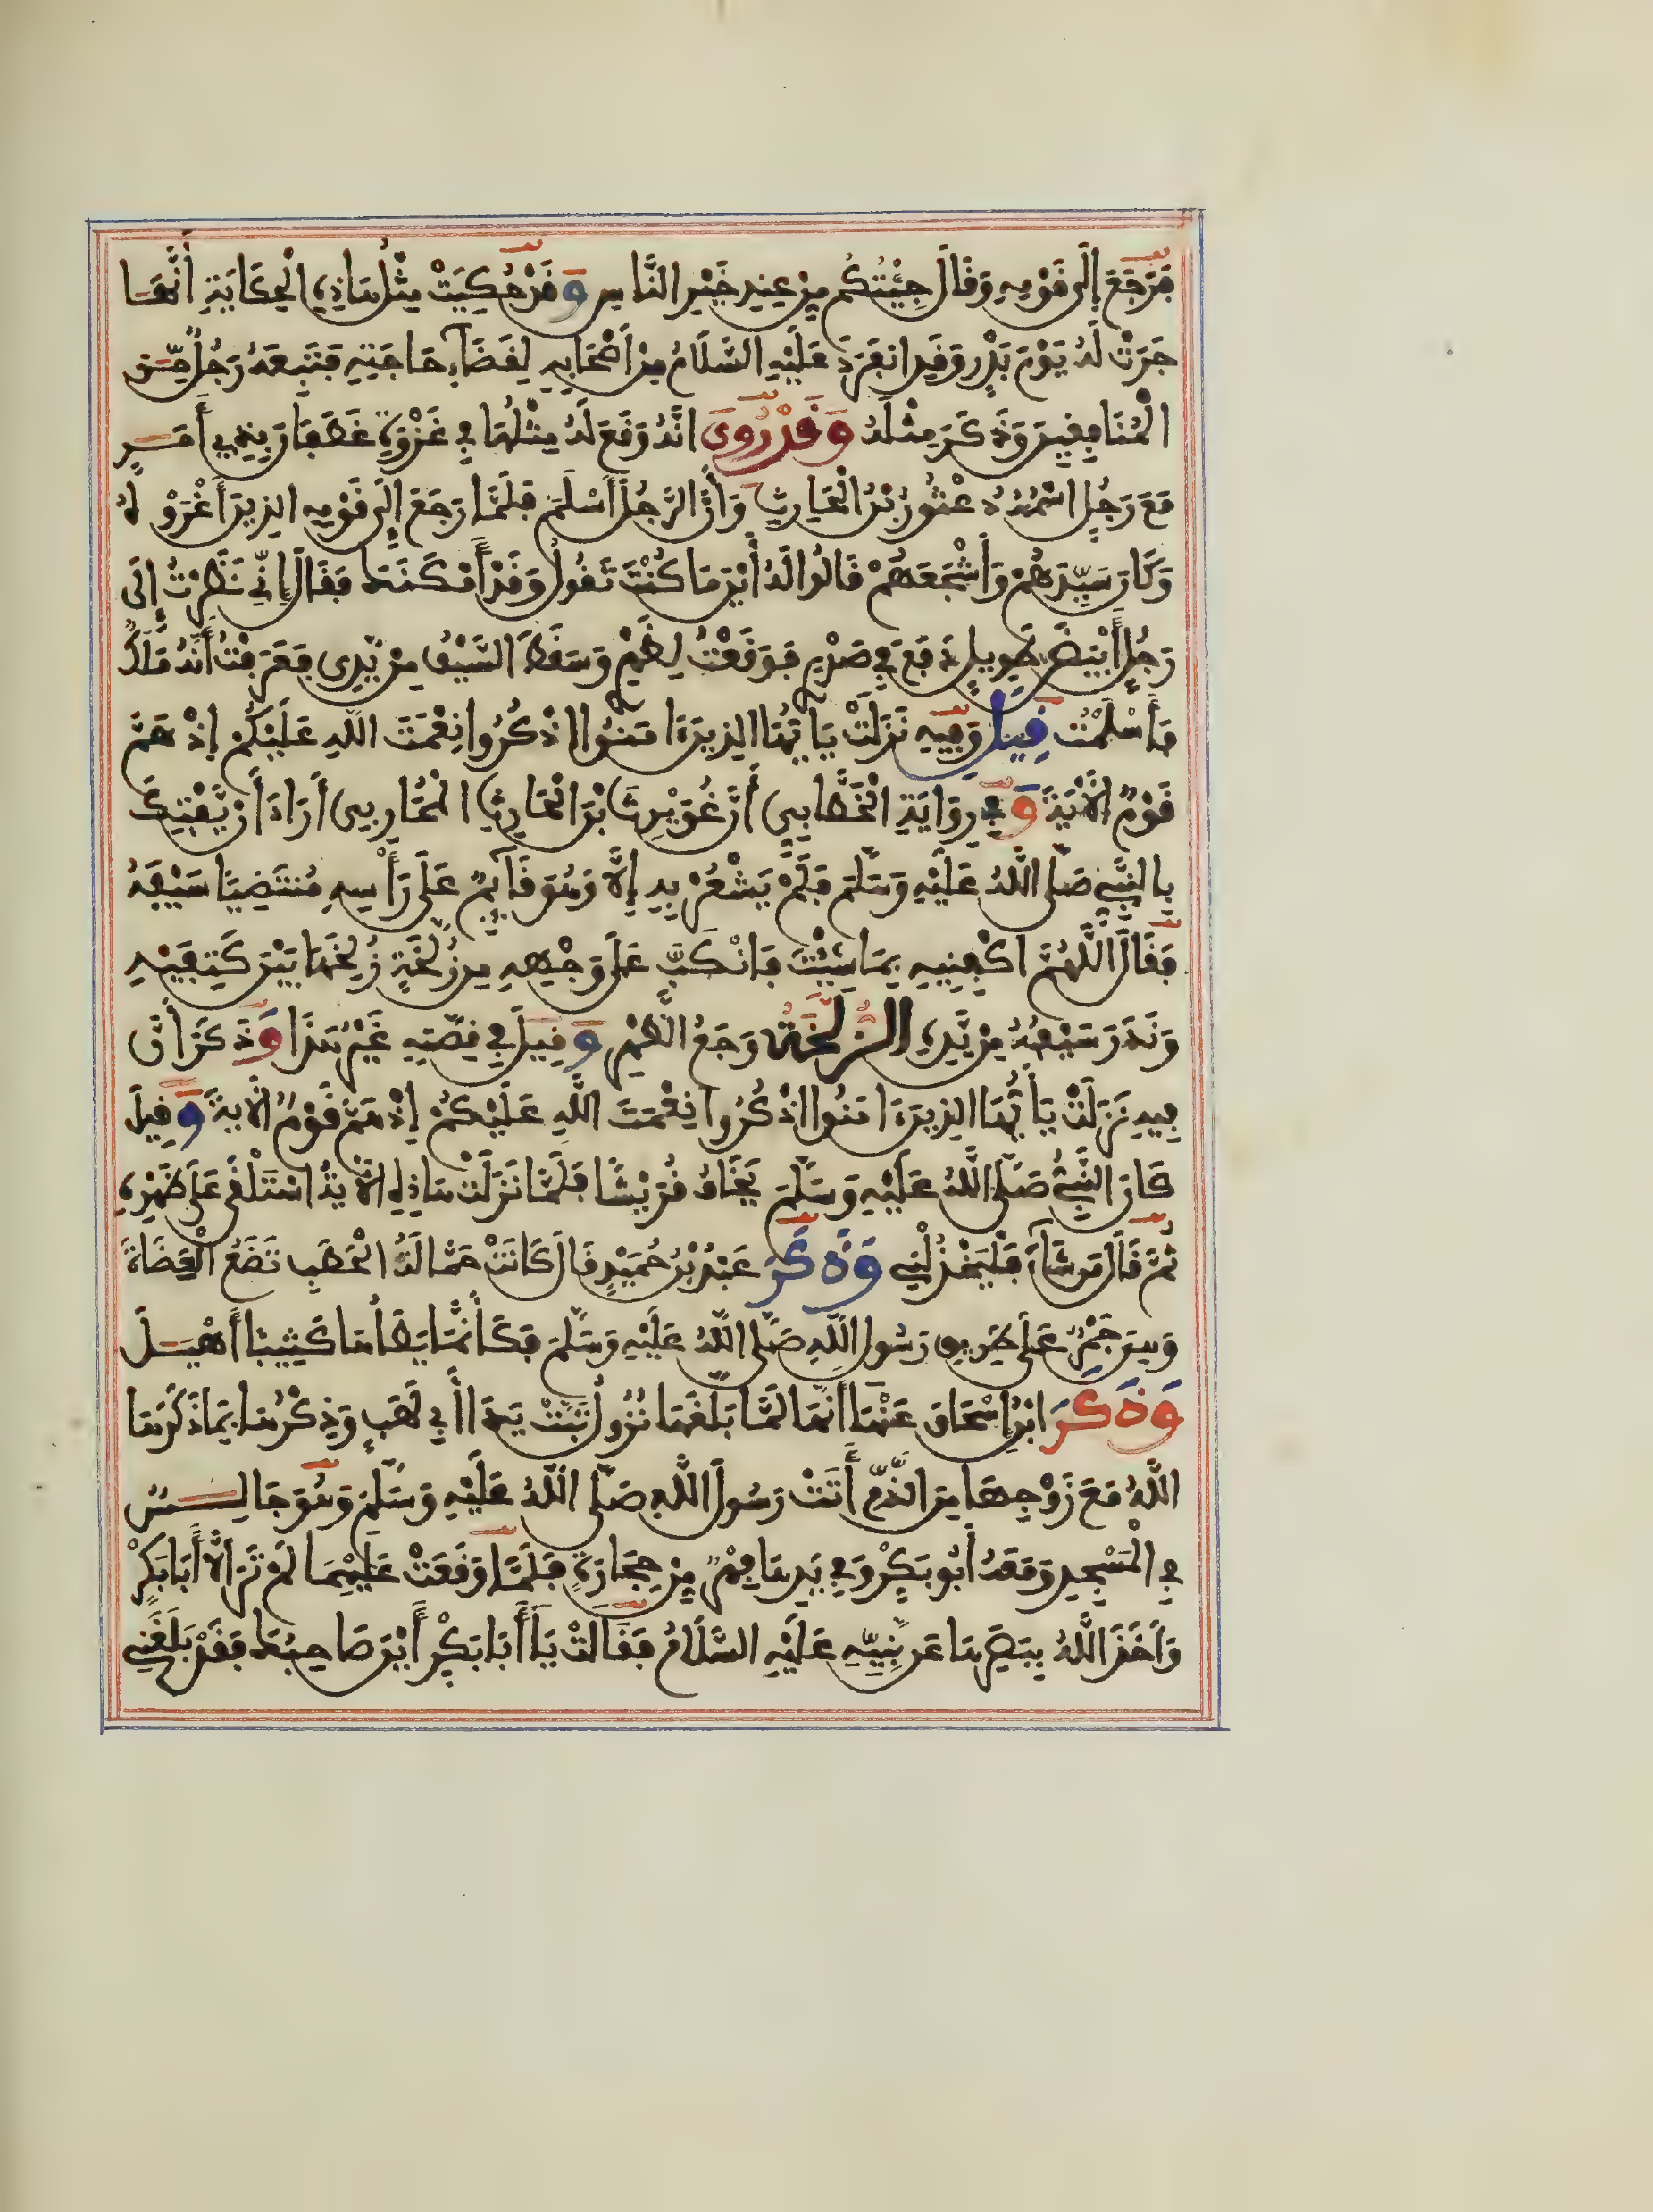 فَرَجَعَ إِلَى قَوْمِهِ وَقَالَ جِئْتُكُم مِنْ عِندِ خَيْرِ النَّاسِ وَقَدْ حُكِيَتْ مِثْلُ هَاذِهِ الْحِكَايَةِ أَنَّهَا
جَرَتْ لَهُ يَوْمَ بَدْرٍ وَقَدِ انفَرَدَ عَلَيْهِ السَّلَامُ مِنْ أَصْحَابِهِ لِقَضَاءِ حَاجَتِهِ فَتَبِعَهُ رَجُلٌ مِّنَ
الْمُنَافِقِينَ وَذَكَرَ مِثْلَهُ وَقَدْ رُوِيَ انَّهُ وَقَعَ لَهُ مِثْلُهَا فِي غَزْوَةِ غَطَفَانَ بِذِي أَمَرٍ
مَعَ رَجُلٍ اسْمُهُ دُعْثُورُ بْنُ الْحَارِثِ وَأَنَّ الرَّجُلَ أَسْلَمَ فَلَمَّا رَجَعَ إِلَى قَوْمِهِ الذِينَ أَغْرَوْهُ
وَكَانَ سَيِّدَهُمْ وَأَشْجَعَهُمْ قَالُوا لَهُ أَيْنَ مَا كُنْتَ تَقُولُ وَقَدْ أَمْكَنَكَ فَقَالَ إِنِّي نَظَرْتُ إِلَى
رَجُلٍ أَبْيَضَ طَوِيلٍ دَفَعَ فِي صَدْرِي فَوَقَعْتُ لِظَهْرِي وَسَقَطَ السَّيْفُ مِنْ يَّدِي فَعَرَفْتُ أَنَّهُ مَلَكٌ
فَأَسْلَمْتُ قِيلَ وَفِيهِ نَزَلَتْ يَاأَيُّهَا الذِينَ ءَامَنُوا اذْكُرُوا نِعْمَتَ اللَّهِ عَلَيْكُمْ إِذْ هَمَّ
قَوْمٌ الْآيَةَ وَفِي رِوَايَةِ الْخَطَّابِيِّ أَنَّ غُوَيْرِثَ بْنَ الْحَارِثِ الْمُحَارِبِي أَرَادَ أَنْ يَّفْتِكَ
بِالنَّبِيِّ صَلَّى اللَّهُ عَلَيْهِ وَسَلَّمَ فَلَمْ يَشْعُرْ بِهِ إِلَّا وَهُوَ قَائِمٌ عَلَى رَأْسِهِ مُنتَضِيًا سَيْفَهُ
فَقَالَ اللَّهُمَّ اكْفِنِيهِ بِمَا شِئْتَ فَانْكَبَّ عَلَى وَجْهِهِ مِن زُلَّخَةٍ زُلِّخَهَا بَيْنَ كَتِفَيْهِ
وَنَدَرَ سَيْفُهُ مِنْ يَّدِهِ الزُّلَّخَةُ وَجَعُ الظَّهْرِ وَقِيلَ فِي قِصَّتِهِ غَيْرُ هَذَا وَذَكَرَ أَنَّ
فِيهِ نَزَلَتْ يَاأَيُّهَا الذِينَ ءَامَنُوا اذْكُرُوا نِعْمَتَ اللَّهِ عَلَيْكُمْ إِذْ هَمَّ قَوْمٌ الْآيَةَ وَقِيلَ
كَانَ النَّبِيُّ صَلَّى اللَّهُ عَلَيْهِ وَسَلَّمَ يَخَافُ قُرَيْشًا فَلَمَّا نَزَلَتْ هَاذِهِ الْآيَةُ اسْتَلْقَى عَلَى ظَهْرِهِ
ثُمَّ قَالَ مَن شَاءَ فَلْيَخْذُلْنِي وَذَكَرَ عَبْدُ بْنُ حُمَيْدٍ قَالَ كَانَتْ حَمَّالَةُ الْحَطَبِ تَضَعُ الْعِضَاهَ
وَهِيَ جَمْرٌ عَلَى طَرِيقِ رَسُولِ اللَّهِ صَلَّى اللَّهُ عَلَيْهِ وَسَلَّمَ فَكَأَنَّمَا يَطَأُهَا كَثِيبًا أَهْيَلَ
وَذَكَرَ ابْنُ إِسْحَاقَ عَنْهَا أَنَّهَا لَمَّا بَلَغَهَا نُزُولُ تَبَّتْ يَدَا أَبِي لَهَبٍ وَذِكْرُهَا بِمَا ذَكَرَهَا
اللَّهُ مَعَ زَوْجِهَا مِنَ الذَّمِّ أَتَتْ رَسُولَ اللَّهِ صَلَّى اللَّهُ عَلَيْهِ وَسَلَّمَ وَهُوَ جَالِسٌ
فِي الْمَسْجِدِ وَمَعَهُ أَبُو بَكْرٍ وَفِي يَدِهَا فِهْرٌ مِنْ حِجَارَةٍ فَلَمَّا وَقَفَتْ عَلَيْهِمَا لَمْ تَرَ إِلَّا أَبَا بَكْرٍ
وَأَخَذَ اللَّهُ بِبَصَرِهَا عَن نَبِيِّهِ عَلَيْهِ السَّلَامُ فَقَالَتْ يَا أَبَا بَكْرٍ أَيْنَ صَاحِبُكَ فَقَدْ بَلَغَنِي